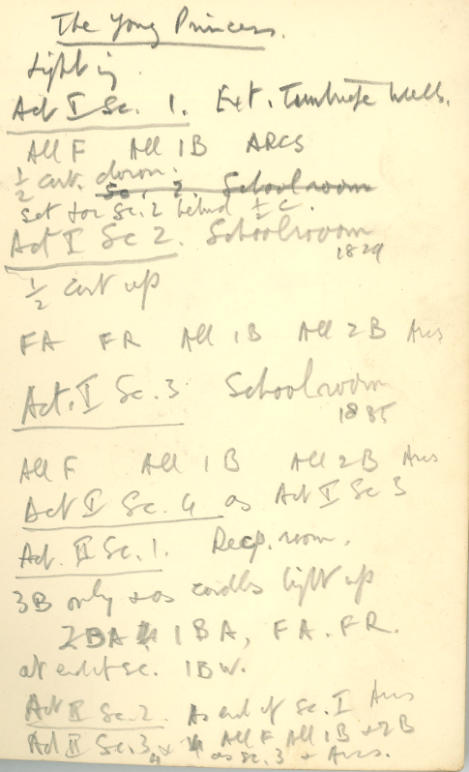 The Young Princess.
Lighting.
Act I Sc. 1. Ext. Tunbridge Wells.
All F All 1B ARCS
½ curt. down.
Sc. 2. Schoolroom
set for Sc. 2 behind ½ c.
Act I Sc 2. Schoolroom
1829
½ curt up
FA FR All 1B All 2B Arcs
Act. I Sc. 3 Schoolroom
1835
All F All 1B All 2B Arcs
Act I Sc. 4 as Act I Sc 3
Act. II Sc. 1. Recp. room.
3B only & as candles light up
2BA 1BA, FA. FR.
at end of sc. 1BW.
Act II Sc. 2. As end of Sc. I Arcs
Act II Sc. 3 All F All 1B & 2B
as sc. 3 & Arcs.